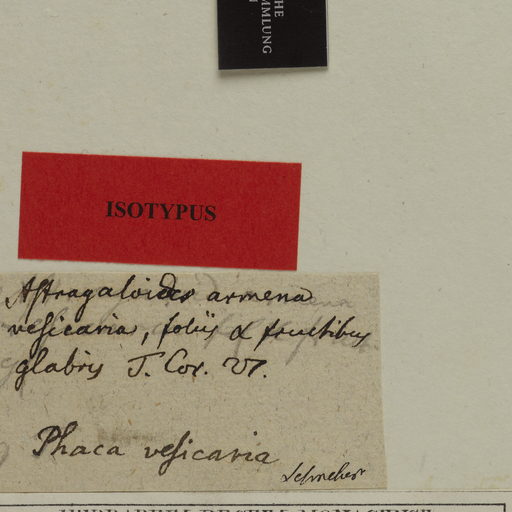 MMLUNG
ISOTYPUS
Astragaloides armena
vesicaria, foliis & fructibus
glabris T. Cor. VI.
Phaca vesicaria
Schreber